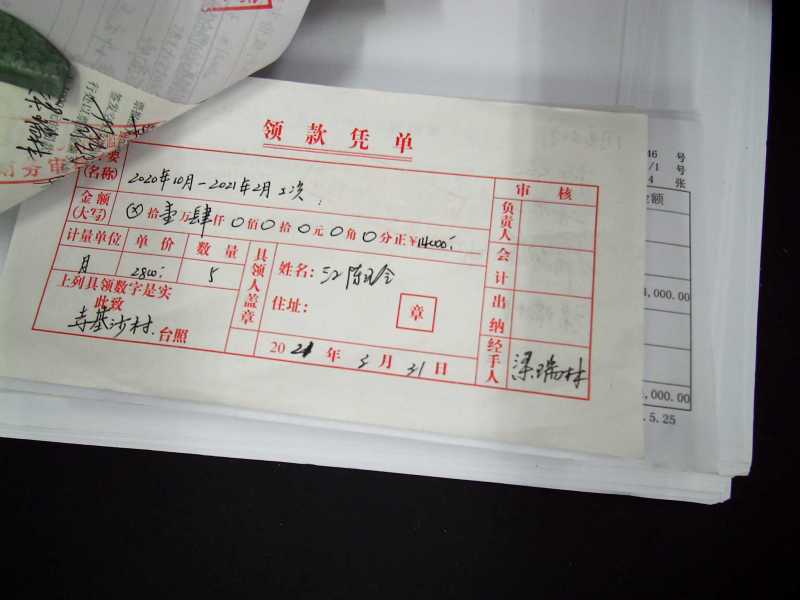 领款凭单
要
(名称)
2020年10月—2021年2月工资
审核
金额
(大写)
⊗拾壹万肆仟〇佰〇拾〇元〇角〇分正¥14000
负责人
计量单位 单价 数量
具领人盖章
月 2800 5
姓名:
会计
上列具领数字是实
此致
住址:
章
出纳
寺基沙村 台照
2021年5月31日
经手人
梁瑞林
46 号
/1 号
4 张
金额
4,000.00
,000.00
.5.25